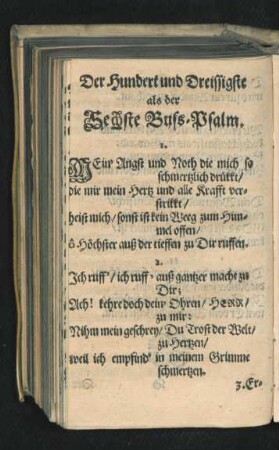 Der Hundert und Dreissigste
als der
Sechste Buß-Psalm.
1.
MEin Angst und Noth die mich so
schmertzlich drükkt/
die mir mein Hertz und alle Krafft ver-
strikkt/
heist mich/ sonst ist kein Weeg zum Him-
mel offen/
ô Höchster auß der tieffen zu Dir ruffen.
2.
Ich ruff'/ ich ruff' auß gantzer macht zu
Dir;
Ach! kehre doch dein' Ohren/ HERR/
zu mir:
Nihm mein geschrey/ Du Trost der Welt/
zu Hertzen/
weil ich empfind' in meinem Grimme
schmertzen.
3. Er-